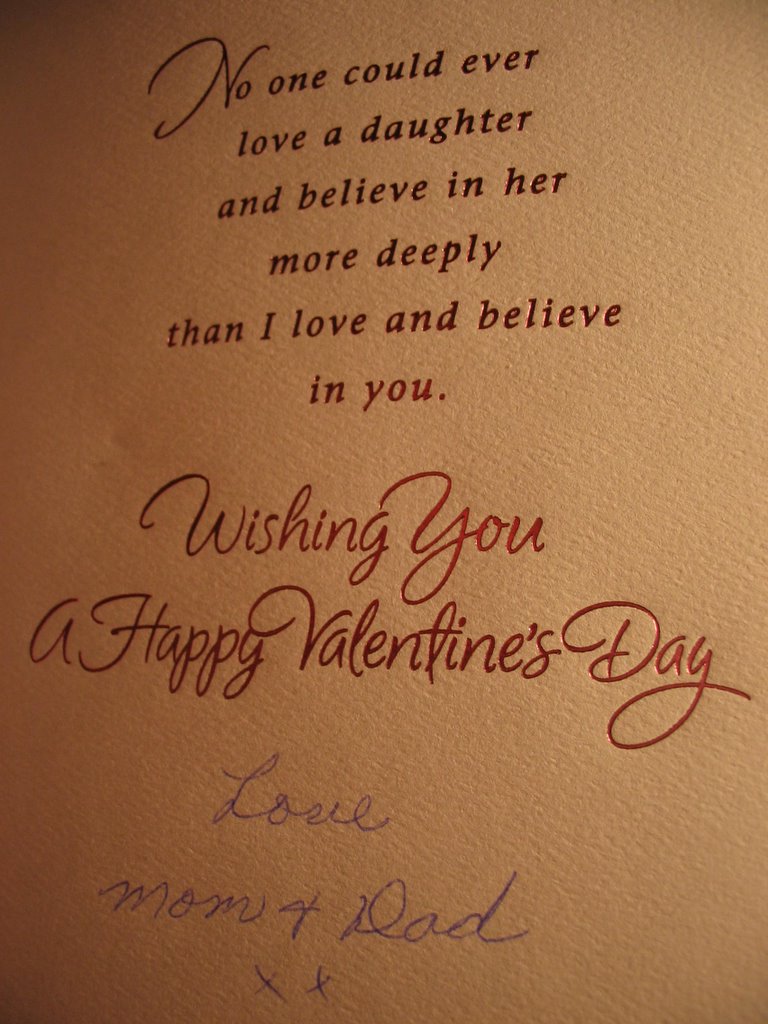 No one could ever
love a daughter
and believe in her
more deeply
than I love and believe
in you.
Wishing You
A Happy Valentine's Day
Love
Mom + Dad
x x